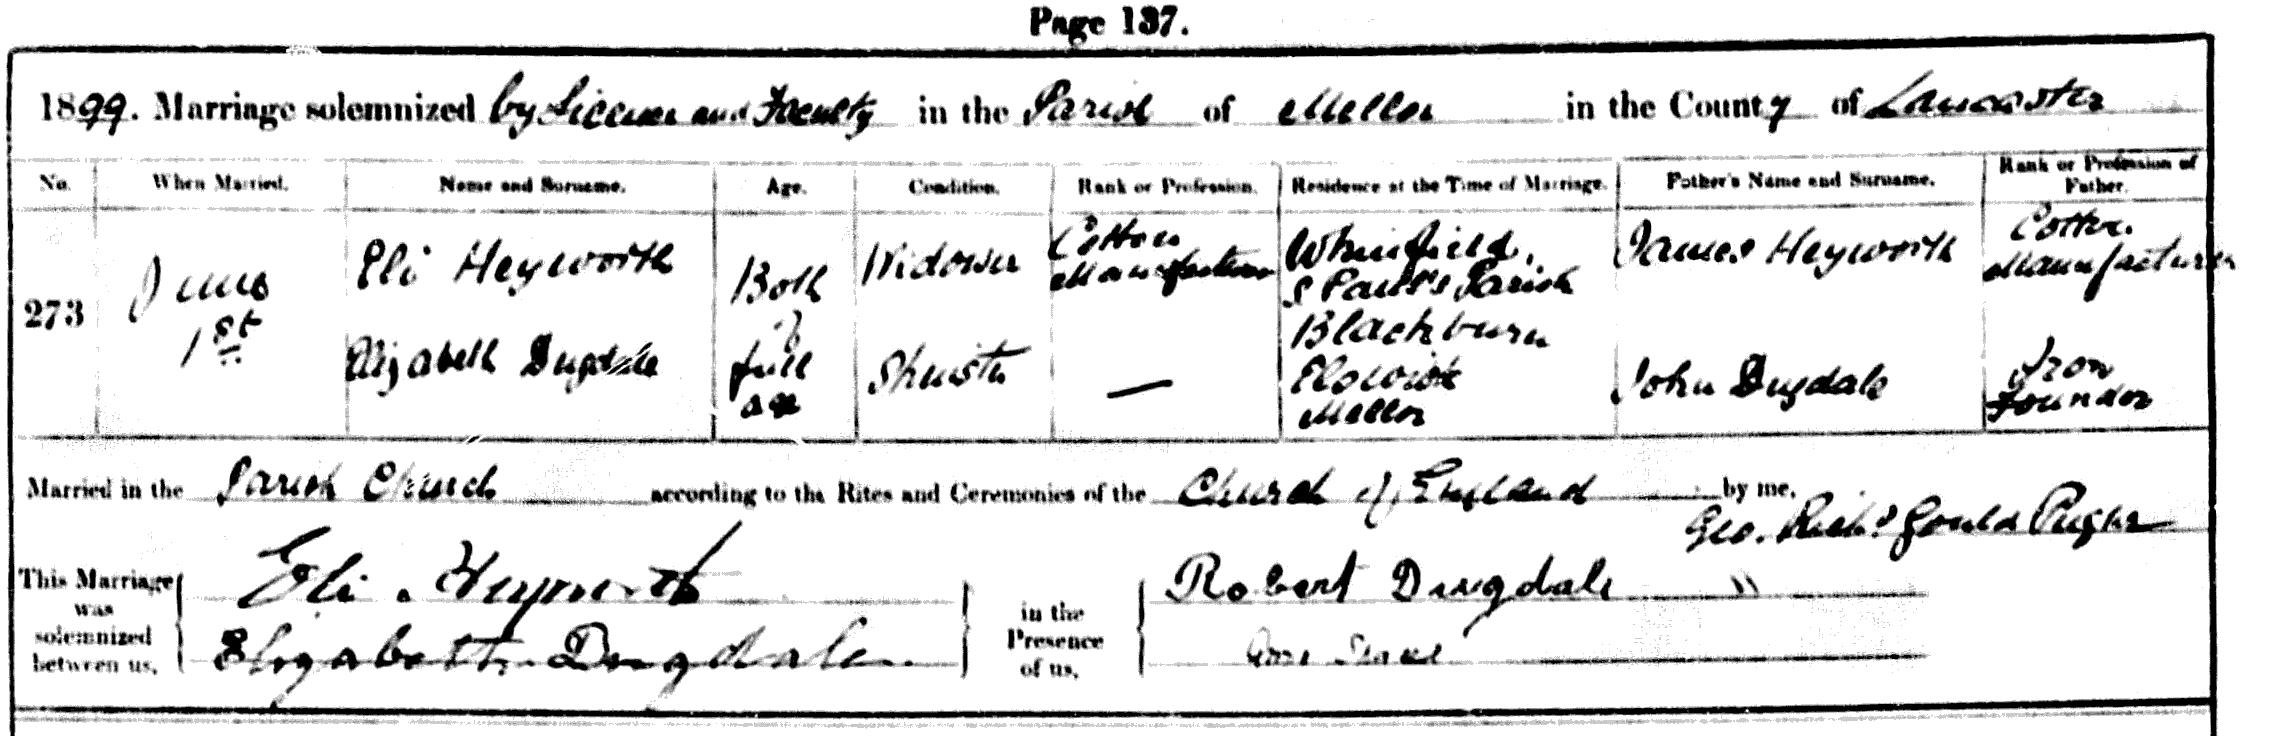 Page 137.
1899. Marriage solemnized by Licence and Faculty in the Parish of Mellor in the County of Lancaster
No. When Married. Name and Surname. Age. Condition. Rank or Profession. Residence at the Time of Marriage. Father's Name and Surname. Rank or Profession of Father.
273 June 1st
Eli Heyworth Both of full age Widower Cotton Manufacturer Whinfield, S Paul's Parish Blackburn James Heyworth Cotton Manufacturer
Elizabeth Dugdale Spinster — Mellor John Dugdale Iron Founder
Married in the Parish Church according to the Rites and Ceremonies of the Church of England by me,
Geo. Richd Gould
This Marriage was solemnized between us, Eli Heyworth in the Presence of us, Robert Dugdale
Elizabeth Dugdale